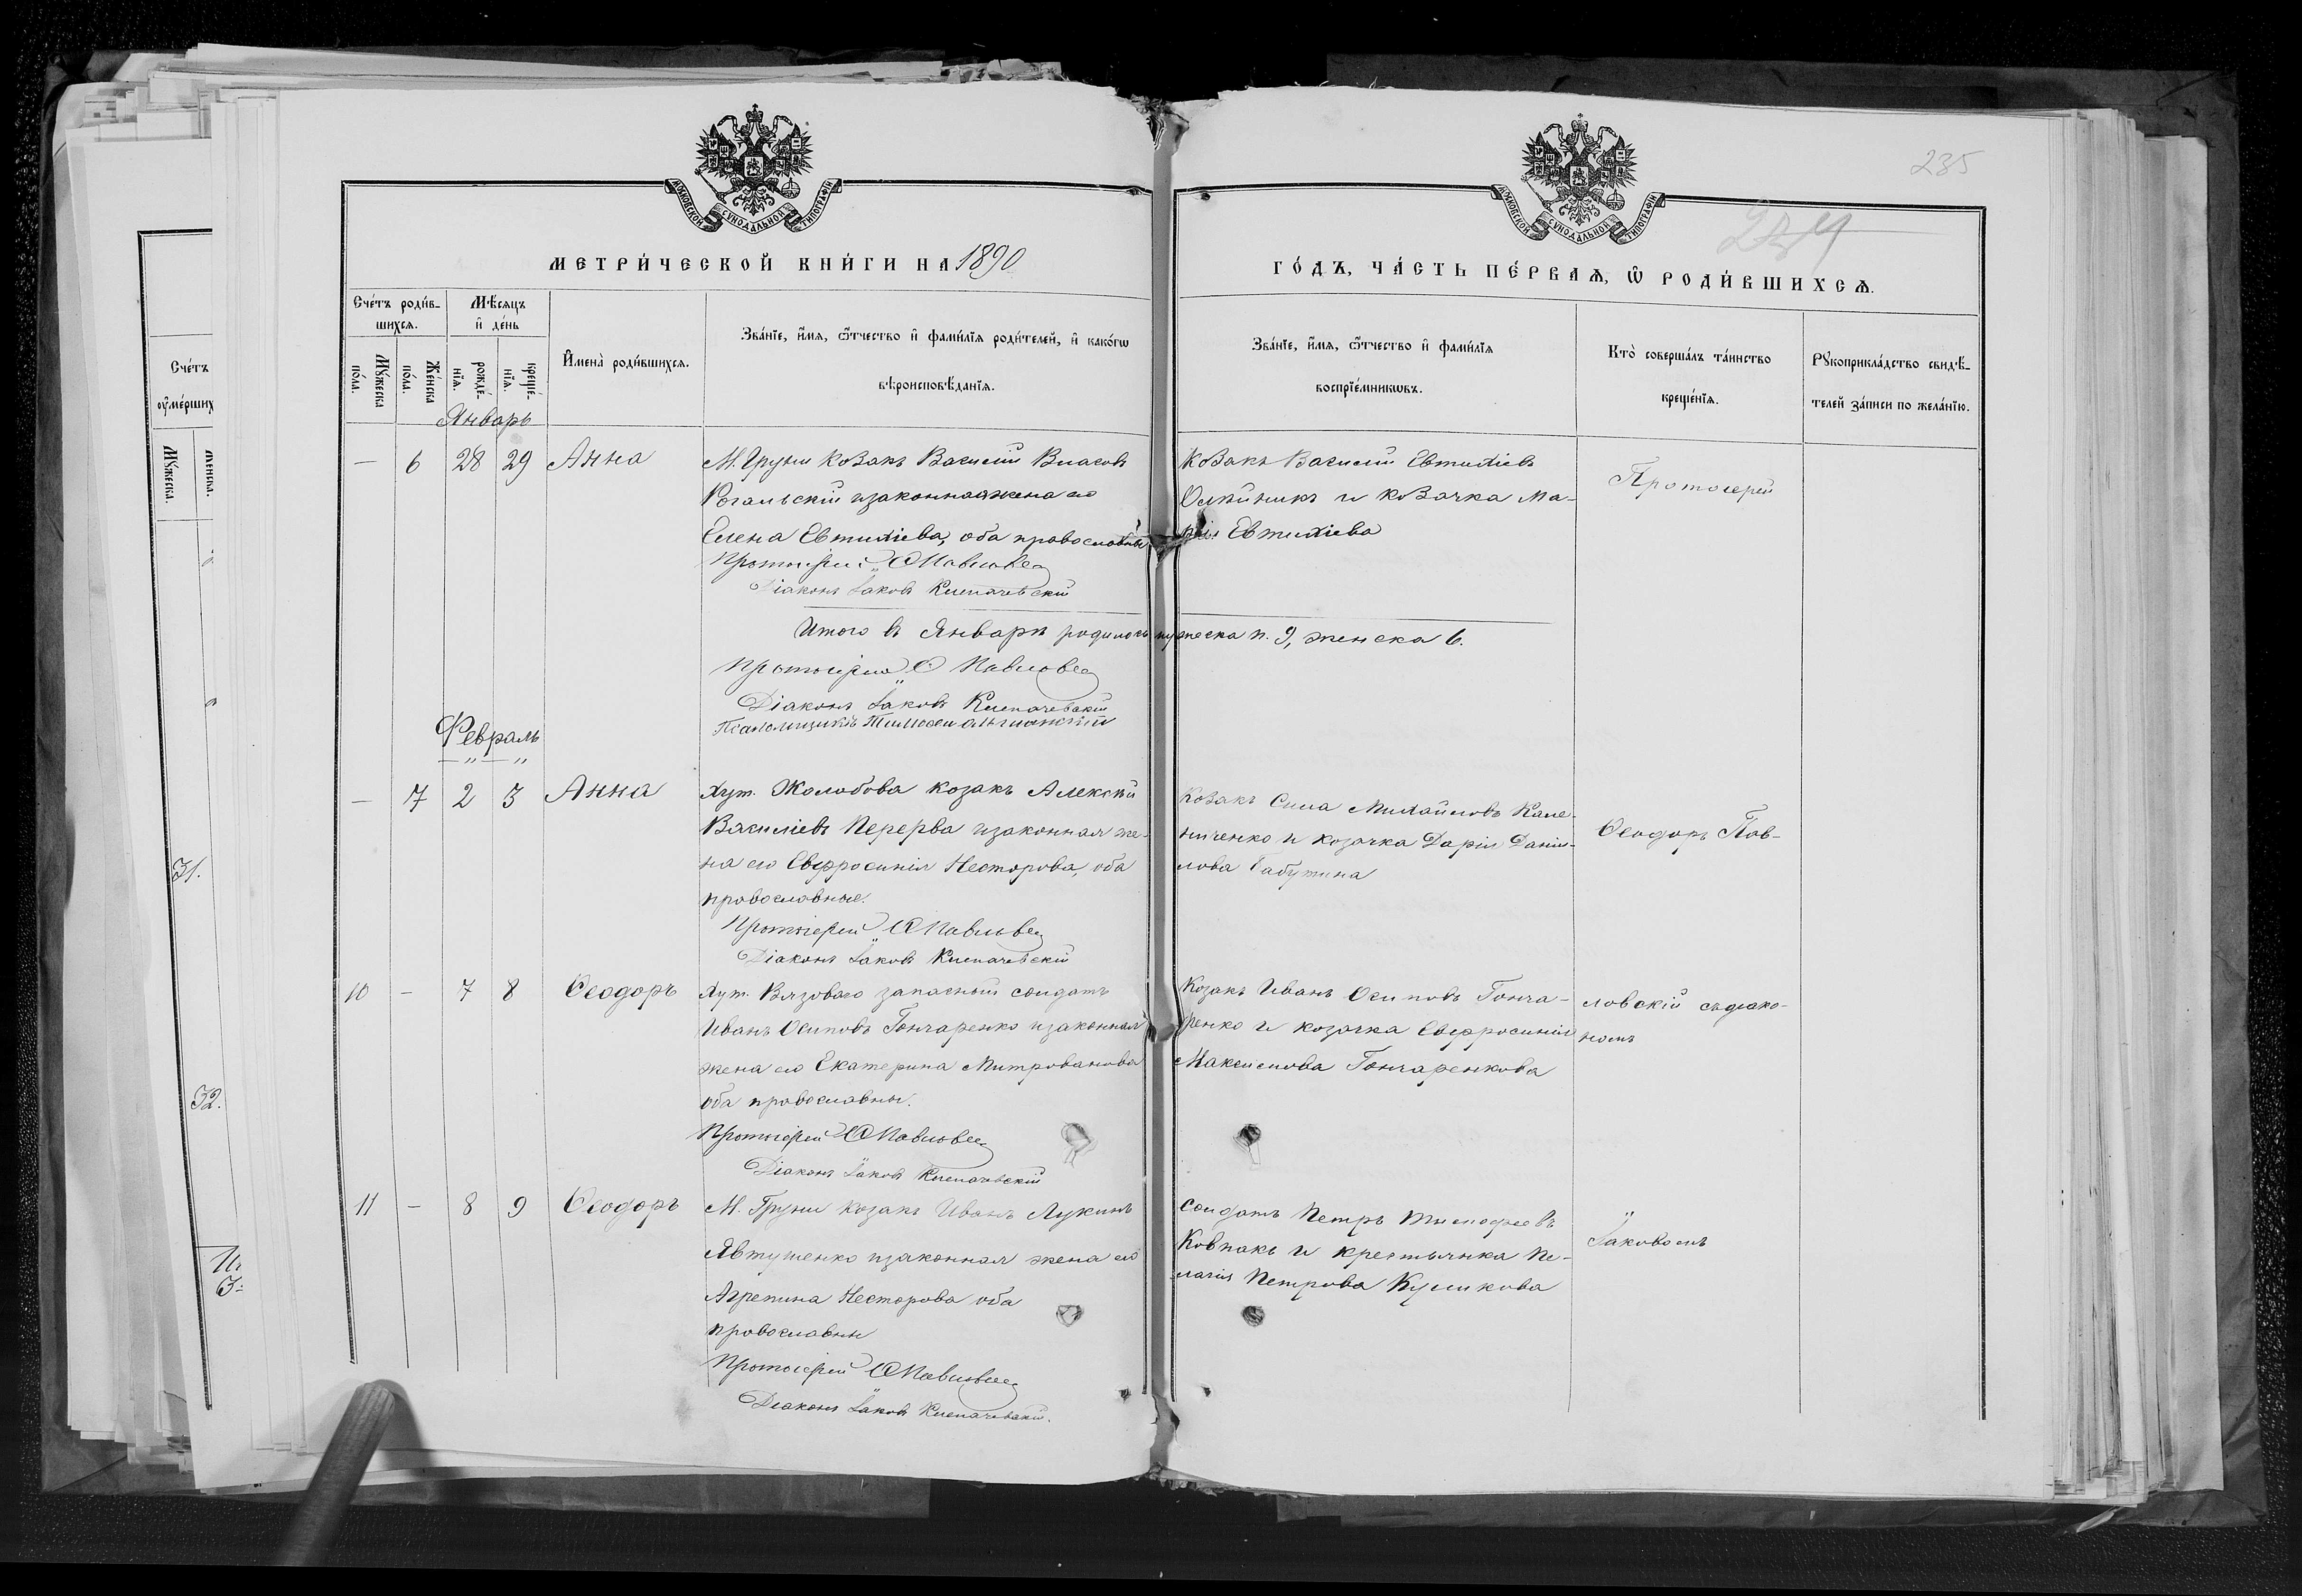 235
МОСКОВСКОЙ СУНОДАЛЬНОЙ ТИПОГРАФІИ
МОСКОВСКОЙ СУНОДАЛЬНОЙ ТИПОГРАФІИ
МЕТРИ́ЧЕСКОЙ КНИ́ГИ НА 1890
ГО́ДЪ, ЧА́СТЬ ПЕ́РВАѦ, Ѿ РОДИ́ВШИХСѦ.
Сче́тъ роди́в-
шихсѧ.
Мꙋ́жеска
по́ла.
Же́нска
по́ла.
Мѣ́сѧцъ
и҆ де́нь
рожде́-
нїѧ.
креще́-
нїѧ.
И҆мена̀ роди́вшихсѧ.
Зва́нїе, и҆́мѧ, ѻ҆́тчество и҆ фами́лїѧ роди́телей, и҆ како́гѡ
вѣроисповѣ́данїѧ.
Зва́нїе, и҆́мѧ, ѻ҆́тчество и҆ фами́лїѧ
воспрїе́мникѡвъ.
Кто̀ соверша́лъ та́инство
креще́нїѧ.
Рꙋкоприкла́дство свидѣ́-
телей за́писи по жела́нїю.
Январь
— 6 28 29 Анна
М. Груни козакъ Василій Власовъ
Рогальскій и законная жена его
Елена Евтихіева, оба православны
Протоіерей Ѳ Павловс
Діаконъ Іаковъ Клепачевскій
Козакъ Василій Евтихіевъ
Олейникъ и козачка Ма-
рія Евтихіева
Протоіерей
Итого въ Январѣ родилось мужеска п. 9, женска 6.
Протоіерей Ѳ Павловс
Діаконъ Іаковъ Клепачевскій
Псаломщикъ Тимоѳей
Февраль
— 7 2 3 Анна
Хут. Жолобова козакъ Алексѣй
Василіевъ Перерва и законная же-
на его Евфросинія Несторова, оба
православные.
Протоіерей Ѳ Павловс
Діаконъ Іаковъ Клепачевскій
Козакъ Сила Михайловъ Кале-
ниченко и козачка Дарія Даніи-
лова Бабутина
Ѳеодоръ Пав-
10 — 7 8 Ѳеодоръ
Хут. Вязоваго запасный солдатъ
Иванъ Осиповъ Гончаренко и законная
жена его Екатерина Митрованова
оба православны.
Протоіерей Ѳ Павловс
Діаконъ Іаковъ Клепачевскій
Козакъ Иванъ Осиповъ Гонча-
ренко и козачка Евфросинія
Максимова Гончаренкова
ловскій съ діако-
номъ
11 — 8 9 Ѳеодоръ
М. Груни козакъ Иванъ Лукинъ
Явтушенко и законная жена его
Агрепина Несторова оба
православны
Протоіерей Ѳ Павловс
Діаконъ Іаковъ Клепачевскій.
Солдатъ Петръ Тимофеевъ
Ковпакъ и крестьянка Пе-
лагія Петрова Куликова
Іаковомъ
Сче́тъ
ᲂу҆ме́рших
Мꙋ́жеска.
Же́нска.
31.
32.